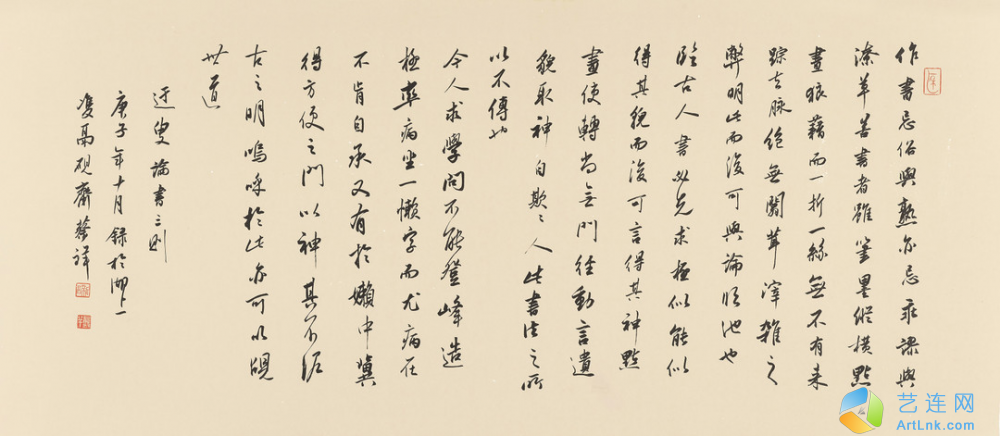 作書忌俗與熟亦忌乖謬與
潦草善書者雖筆墨縱橫點
畫狼藉而一折一絲無不有來
踪去脉絕無闒茸渾雜之
弊明此而後可與論臨池也
臨古人書必先求極似能似
得其貌而後可言得其神點
畫使轉尚無門徑動言遺
貌取神自欺〻人此書法之所
以不傳也
今人求學問不能登峰造
極率病坐一懶字而尤病在
不肯自承又有於嬾中冀
得方便之門以神其不泥
古之明嗚呼於此亦可以覘
世道
迂叟論書三則
庚子年十月錄於湖上一
雙鬲硯齋蔡祥
艺连网
ArtLnk.com